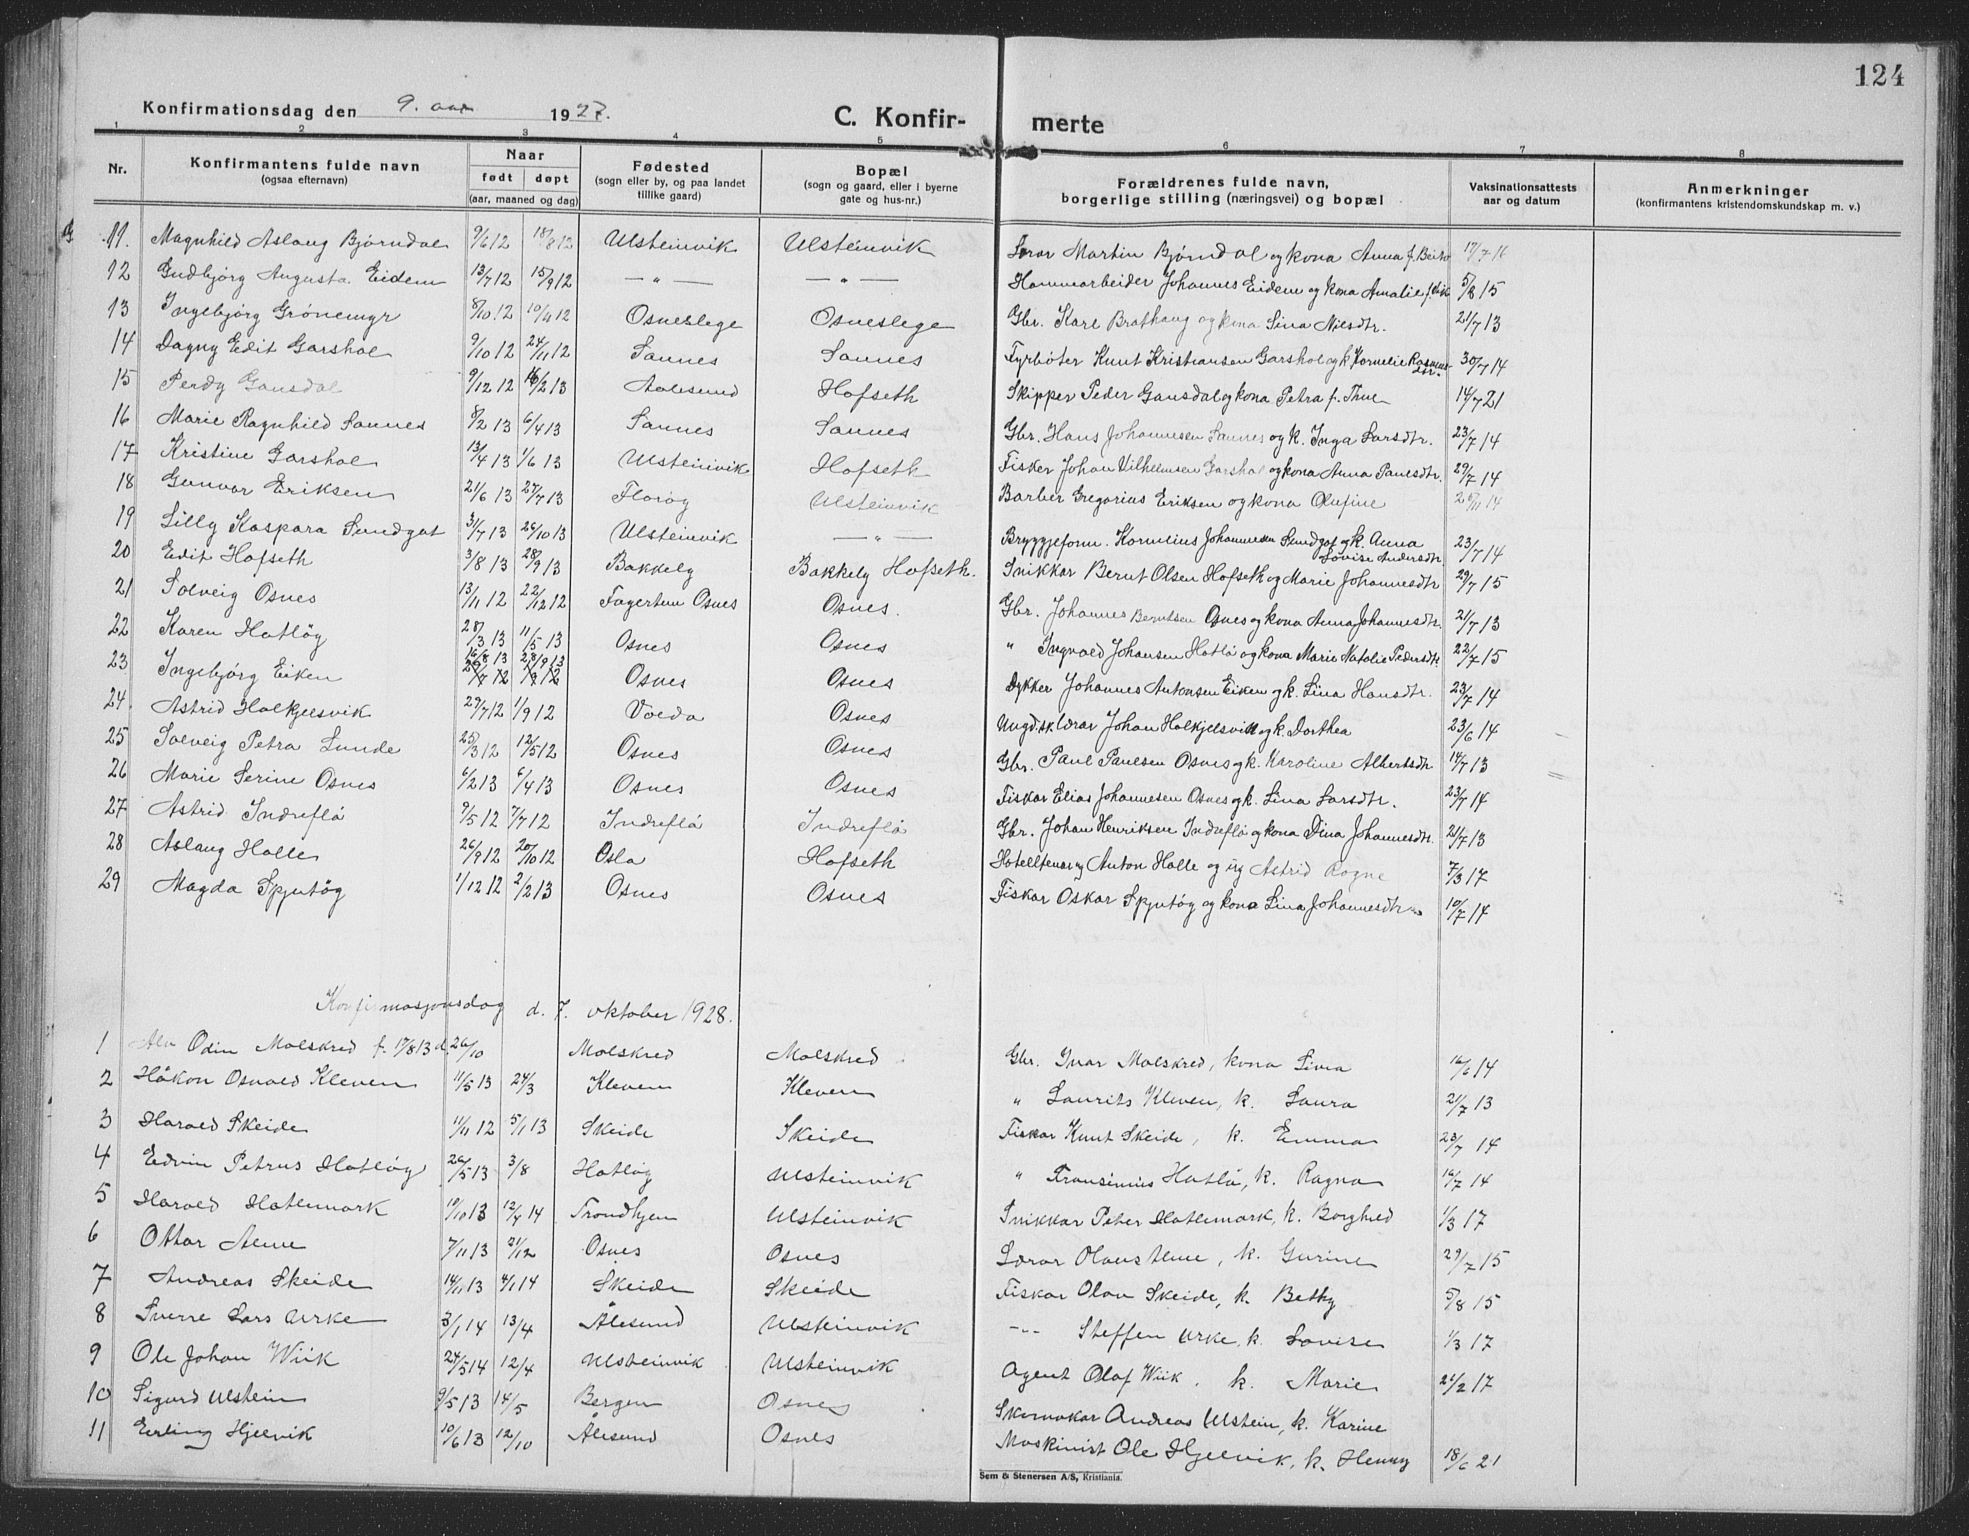 124
Konfirmationsdag den 9. 1927.
C. Konfir- merte
1 2 3 4 5 6 7 8
Nr. Konfirmantens fulde navn (ogsaa efternavn) Naar født døpt (aar, maaned og dag) Fødested (sogn eller by, og paa landet tillike gaard) Bopæl (sogn og gaard, eller i byerne gate og hus-nr.) Forældrenes fulde navn, borgerlige stilling (næringsvei) og bopæl Vaksinationsattests aar og datum Anmerkninger (konfirmantens kristendomskundskap m. v.)
11. Magnhild Aslaug Bjørndal 9/6 12 18/8 12 Ulsteinvik Ulsteinvik Lærar Martin Bjørndal og kona Anna f. 17/7 16
12 Gudbjørg Augusta Eidem 13/7 12 15/9 12 — " — — " — Johannes Eidem og kona Amalie f. 5/8 15
13 Ingebjørg Grønemyr 8/10 12 10/11 12 Osneslege Osneslege Gbr. Karl Brathaug og kona Lina Nilsdtr. 21/7 13
14 Dagny Edit Garshol 9/10 12 24/11 12 Sannes Sannes Fyrbøter Knut Kristiansen Garshol og k. Kornelie Rasmusdtr. 30/7 14
15 Perdy Gausdal 9/12 12 16/2 13 Aalesund Hofseth Skipper Peder Gausdal og kona Petra f. Thue 14/7 21
16 Marie Ragnhild Sannes 8/2 13 6/4 13 Sannes Sannes Gbr. Hans Johannesen Sannes og k. Inga Larsdtr. 23/7 14
17 Kristine Garshol 13/4 13 1/6 13 Ulsteinvik Hofseth Fisker Johan Vilhelmsen Garshol og kona Anna Paulsdtr. 29/7 14
18 Gunvor Eriksen 21/6 13 27/7 13 Florøy Ulsteinvik Barber Gregorius Eriksen og kona Olufine 14
19 Lilly Kaspara Sundgot 31/7 13 26/10 13 Ulsteinvik — " — Bryggjeform. Kornelius Johannesen Sundgot og k. Anna Lovise Andersdtr. 23/7 14
20 Edit Hofseth 3/8 13 28/9 13 Bakkely Bakkely Hofseth. Snikkar Bernt Olsen Hofseth og Marie Johannesdtr 29/7 15
21 Solveig Osnes 13/11 12 22/12 12 Fagertun Osnes Osnes. Gbr. Johannes Berntsen Osnes og kona Anna Johannesdtr. 21/7 13
22 Karen Hatløy 28/3 13 11/5 13 Osnes Osnes " Ingvald Johansen Hatlø og kona Marie Natalie Pedersdtr 22/7 15
23 Ingebjørg Eiken 16/8 13 28/9 13 Osnes Osnes Dykker Johannes Antonsen Eiken og k. Lina Hansdtr. 23/7 14
24. Astrid Holkjelsvik 29/7 12 1/9 12 Volda Osnes Ungd.sk.lærar Johan Holkjelsvik og k. Dorthea 23/6 14
25 Solveig Petra Lunde 25/3 12 12/5 12 Osnes Osnes Gbr. Paul Paulsen Osnes og k. Karoline Albertsdtr 14/7 13
26 Marie Serine Osnes 6/2 13 6/4 13 Osnes Osnes Fiskar Elias Johannesen Osnes og k. Lina Larsdtr. 23/7 14
27 Astrid Indreflø 9/5 12 7/7 12 Indreflø Indreflø Gbr. Johan Henriksen Indreflø og kona Dina Johannesdtr. 21/7 13
28 Aslaug Halle 26/9 12 20/10 12 Oslo Hofseth Anton Halle og Astrid Rogne 7/3 17
29 Magda Spjutøy 1/12 12 2/2 13 Osnes Osnes Fiskar Oskar Spjutøy og kona Lina Johannesdtr 10/7 14
Konfirmasjonsdag d. 7. oktober 1928.
1 Alv Odin Molskred f. 17/8 13 d. 26/10 Molskred Molskred Gbr. Ivar Molskred, kona Livia 16/6 14
2 Håkon Osvald Kleven 11/5 13 24/3 Kleven Kleven " Laurits Kleven, k. Laura 21/7 13
3 Harald Skeide 11/11 12 5/1 13 Skeide Skeide Fiskar Knut Skeide, k. Emma 23/7 14
4 Edvin Petrus Hatløy 26/5 13 3/8 Hatløy Ulsteinvik " Fransinius Hatlø, k. Ragna 16/7 14
5 Harald Hatlemark 19/10 13 12/4 14 Trondhjem Ulsteinvik Snikkar Peter Hatlemark, k. Borghild 1/3 17
6 Ottar Alme 7/11 13 21/12 Osnes Osnes Lærar Olaus Alme, k. Gurine 29/7 15
7 Andreas Skeide 14/11 13 4/1 14 Skeide Skeide Fiskar Olav Skeide, k. Bethy 5/8 15
8 Sverre Lars Urke 3/1 14 13/4 Ålesund Ulsteinvik -"- Steffen Urke, k. Lovise 1/3 17
9 Ole Johan Wiik 24/5 14 12/4 Ulsteinvik Ulsteinvik Agent Olaf Wiik. k. Marie 21/2 17
10 Sigurd Ulstein 9/5 13 14/5 Bergen Osnes Skomakar Andreas Ulstein, k. Karine
11 Erling Hjelvik 10/6 13 12/10 Ålesund Osnes Maskinist Ole Hjellvik, k. Henny 18/6 21
Sem & Stenersen A/S, Kristiania.